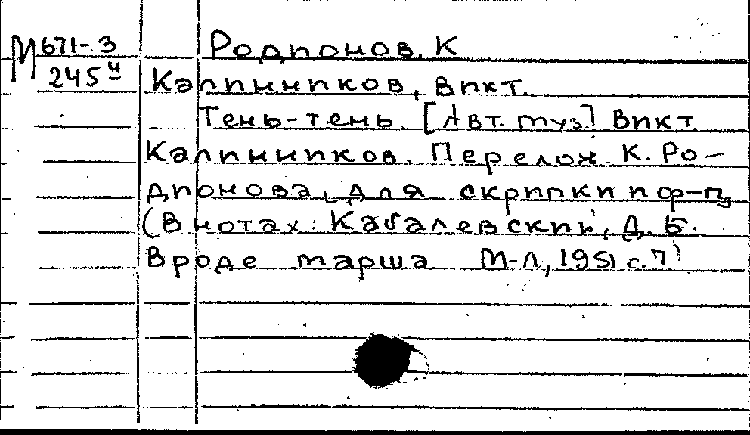 М 671-3 Родионов, К
245ч Калинников, Викт.
Тень-тень. [Авт. муз.] Викт.
Калинников. Перелож. К. Ро-
дионова, для скрипки и ф-п.
(В нотах: Кабалевский, Д. Б.
Вроде марша М-Л, 1951 с. 7)